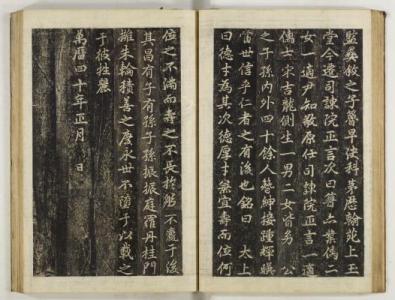 之子早決科第歷翰苑上玉
堂今遷司諫院正言次曰業儒二
女一適尹知敬原任司諫院正言一適
儒士宋吉龍側生一男二女皆幼 公
之子孫內外四十餘人簪紳接踵輝暎
當世信乎仁者之有後也銘曰 太上
曰德才為其次德厚才兼宜壽而位何
位之不滿而壽之不長於躬不于後
其昌有子有孫子孫振振庭羅丹桂門
擁朱輪積善之慶永世不墮于以載之
于彼牲麗
萬曆四十年正月 日